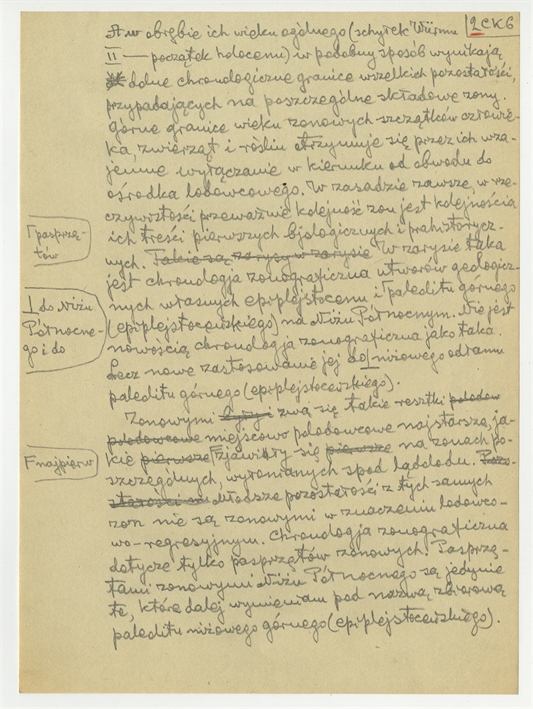 2CK6
A w obrębie ich wieku ogólnego (schyłek Würmu
II — początek holocenu) w podobny sposób wynikają
dolne chronologiczne granice wszelkich pozostałości,
przypadających na poszczególne składowe zony.
Górne granice wieku zonowych szczątków człowie-
ka, zwierząt i roślin otrzymuje się przez ich wza-
jemne wyłączanie w kierunku od obwodu do
ośrodka lodowcowego. W zasadzie zawsze, w rze-
czywistości przeważnie kolejność zon jest kolejnością
ich treści pierwszych biologicznych i prahistorycz-
nych. Takie są zarysy w zarysie W zarysie taka
jest chronologia zonograficzna utworów geologicz-
nych własnych epiplejstocenu i Γpaleolitu górnego
(epiplejstoceńskiego) na Niżu Północnym. Nie jest
nowością chronologja zonograficzna jako taka.
Lecz nowe zastosowanie jej do I niżowego odłamu
paleolitu górnego (epiplejstoceńskiego).
Zonowymi zwą się takie resztki polodow
polodowcowe miejscowo polodowcowe najstarsze, ja-
kie pierwsze F zjawiały się pierwsze na zonach po-
szczególnych, wyłonianych spod lądolodu. Pozo-
stałości Młodsze pozostałości z tych samych
zon nie są zonowymi w znaczeniu lodowco-
wo-regresyjnym. Chronologja zonograficzna
dotyczy tylko pasprzętów zonowych. Pasprzę-
tami zonowymi Niżu Północnego są jedynie
te, które dalej wymieniam pod nazwą zbiorową
paleolitu niżowego górnego (epiplejstoceńskiego).
Γ pasprzę-
tów
I do Niżu
Północne-
go i do
F najpierw